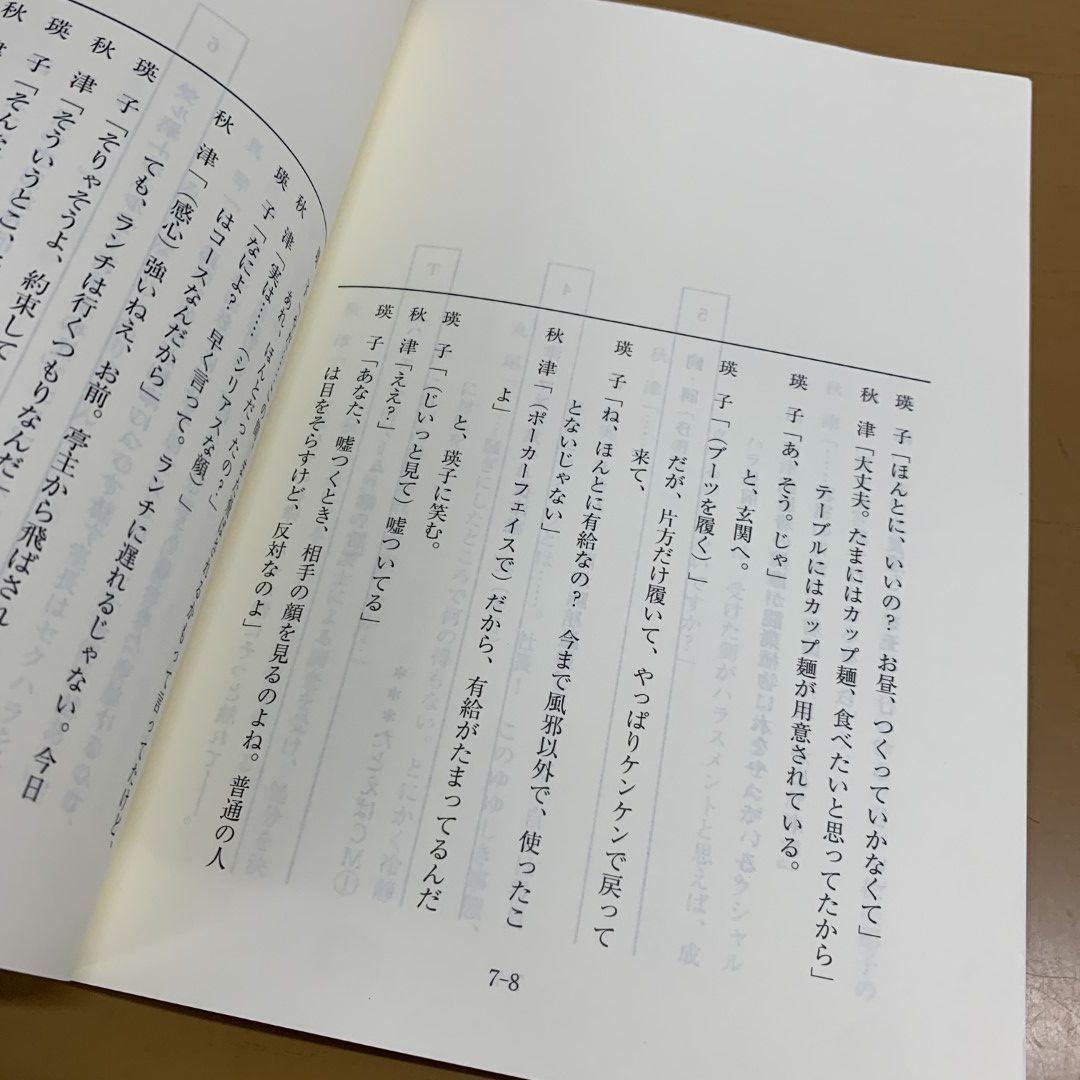 瑛子「ほんとに、いいの？ お昼、つくっていかなくて」
秋津「大丈夫。たまにはカップ麺、食べたいと思ってたから」
テーブルにはカップ麺が用意されている。
瑛子「あ、そう。じゃ」
と、玄関へ。
瑛子「(ブーツを履く)」
だが、片方だけ履いて、やっぱりケンケンで戻って
来て、
瑛子「ね、ほんとに有給なの？ 今まで風邪以外で、使ったこ
とないじゃない」
秋津「(ポーカーフェイスで)だから、有給がたまってるんだ
よ」
と、瑛子に笑む。
瑛子「(じいっと見て)嘘ついてる」
秋津「ええ？」
瑛子「あなた、嘘つくとき、相手の顔を見るのよね。普通の人
は目をそらすけど、反対なのよ」
7-8
秋津「実は……
瑛子「なによ？ 早く言って。ランチに遅れるじゃない。今日
はコースなんだから」
秋津「(感心)強いねえ、お前。亭主から飛ばされ
ても、ランチは行くつもりなんだ」
瑛子「そりゃそうよ、約束して
秋津「そういうとこ、
瑛子「そんな